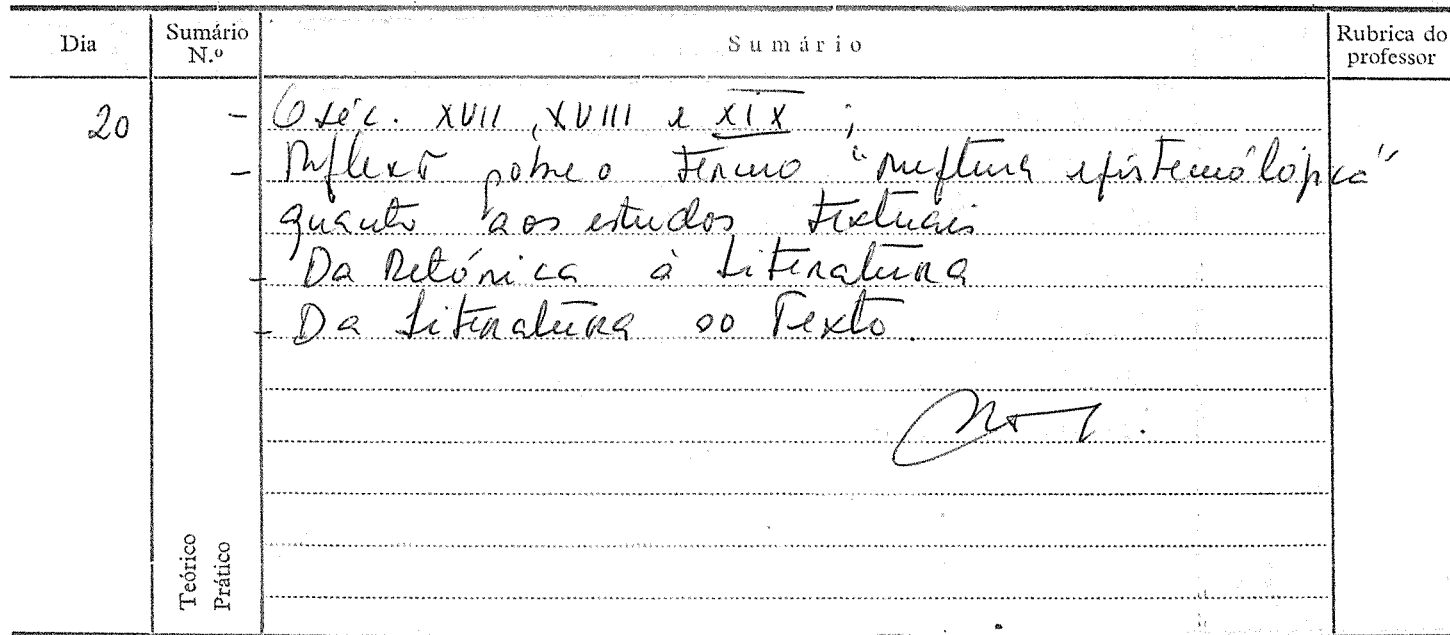 Dia
Sumário N.º
Sumário
Rubrica do professor
20
- O séc. XVII, XVIII e XIX ;
- Reflexã sobre o termo "ruptura epistemológica"
quanto aos estudos textuais
- Da Retórica à Literatura
- Da Literatura ao Texto.
Teórico
Prático